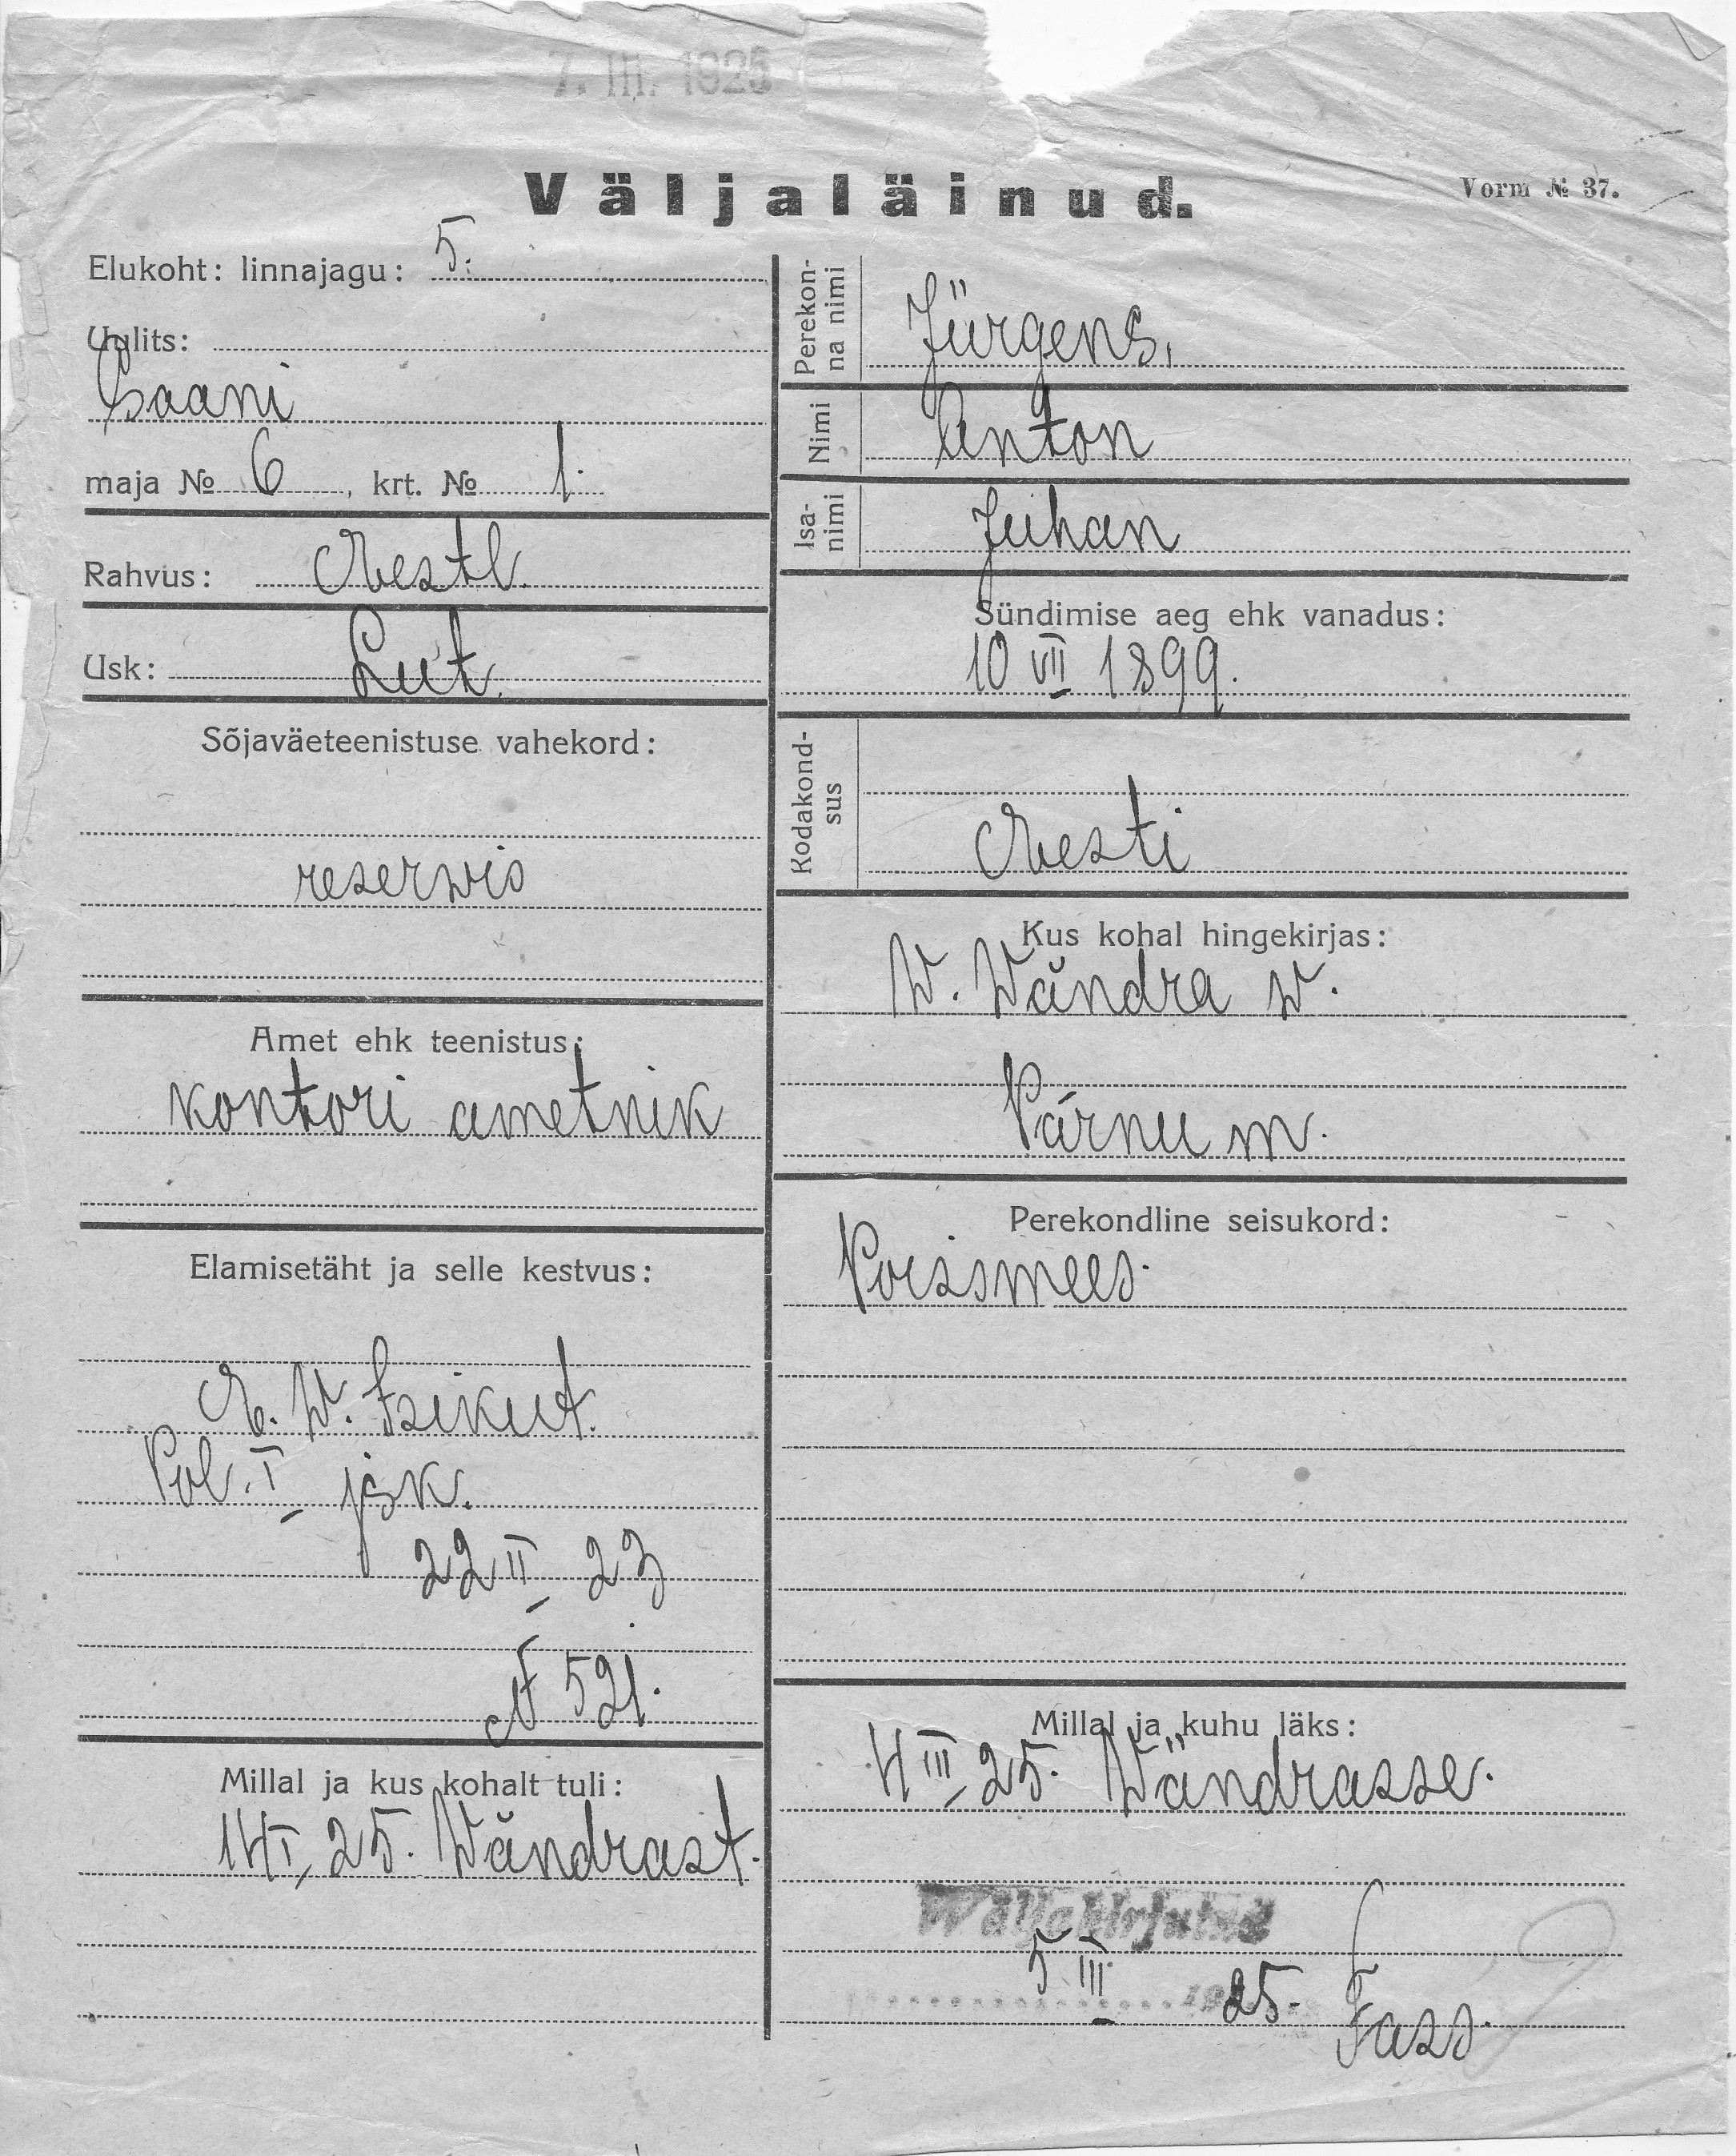 7. III. 1925
Väljaläinud.
Vorm № 37.
Elukoht: linnajagu: 5.
Uulits:
Saani
maja № 6, krt. № 1.
Rahvus: Eestl.
Usk: Lut.
Sõjaväeteenistuse vahekord:
reserwis
Amet ehk teenistus:
kontori ametnik
Elamisetäht ja selle kestvus:
E. W. Isikut.
Pol. I jsk.
22 II 23
N 521.
Millal ja kus kohalt tuli:
14 I 25. Wändrast.
Perekonna nimi
Jürgens,
Nimi
Anton
Isanimi
Juhan
Sündimise aeg ehk vanadus:
10 VII 1899.
Kodakondsus
Eesti
Kus kohal hingekirjas:
W. Wändra w.
Pärnu m.
Perekondline seisukord:
Poissmees.
Millal ja kuhu läks:
4 III 25. Wändrasse.
Wäljakirjutud
5 III 1925.
Fass.